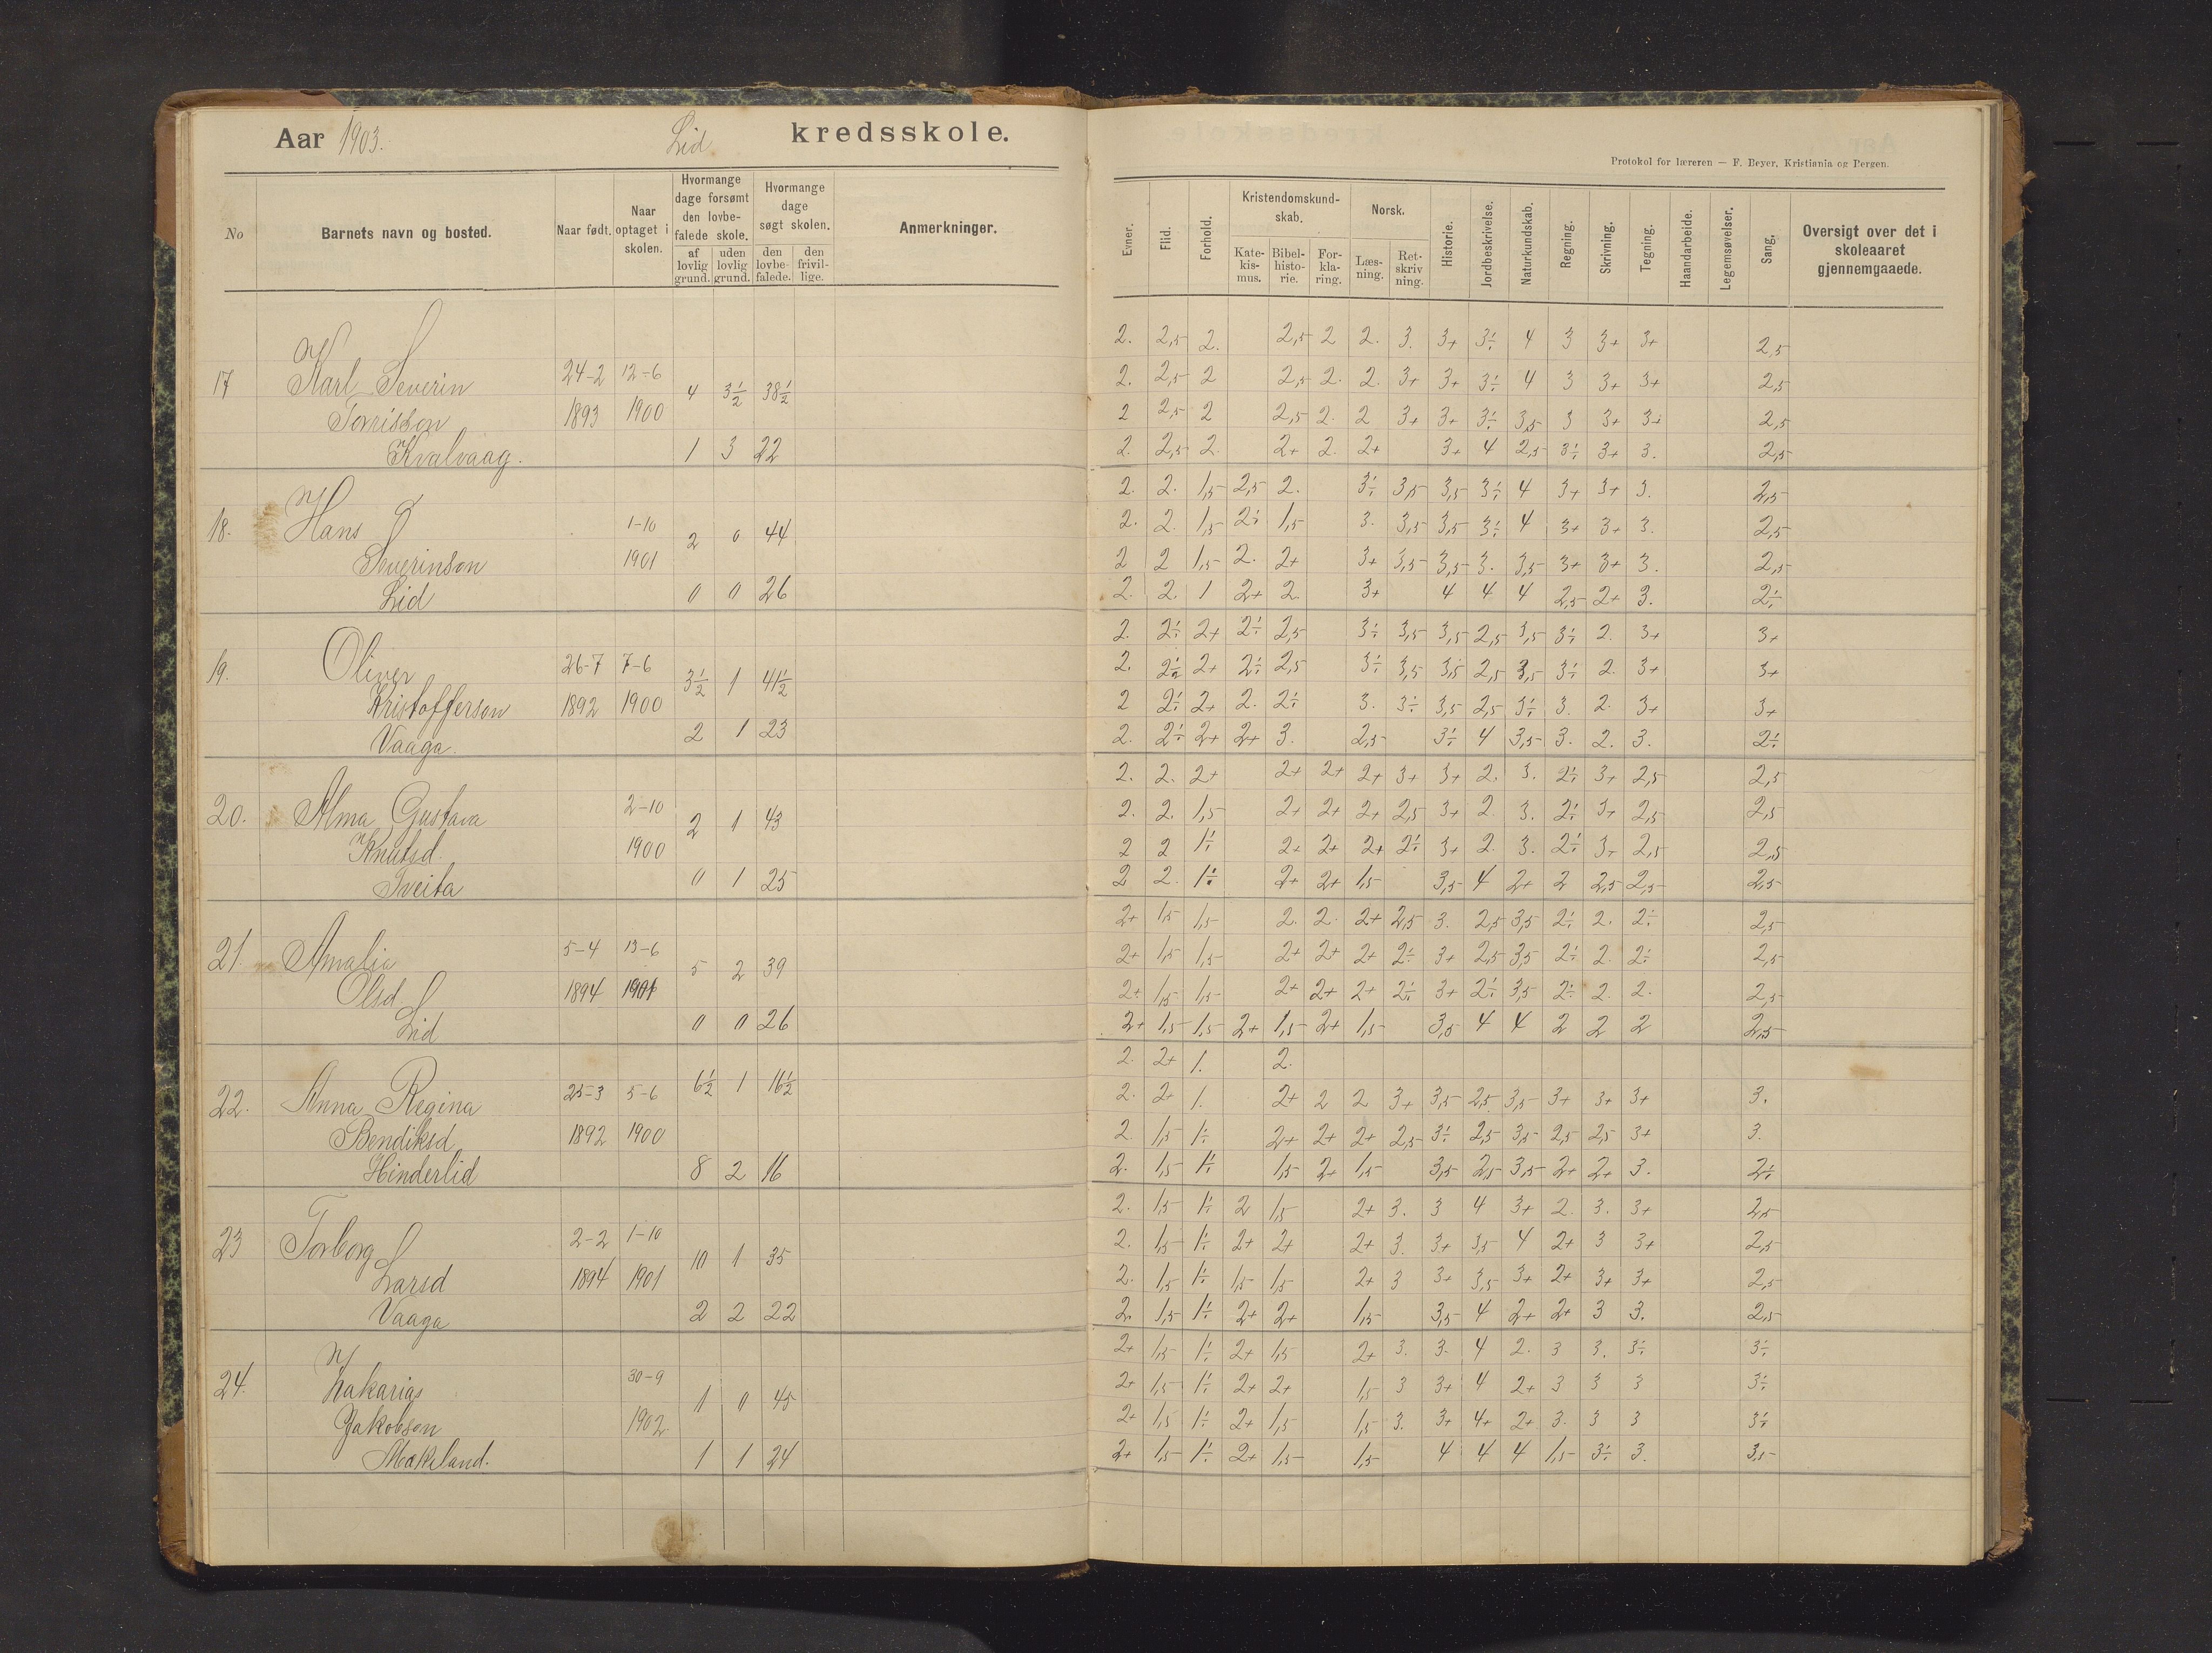 Aar 1903. Lid kredsskole.
No
Barnets navn og bosted.
Naar født.
Naar optaget i skolen.
Hvormange dage forsømt den lovbefalede skole.
af lovlig grund.
uden lovlig grund.
Hvormange dage søgt skolen.
den lovbefalede.
den frivillige.
Anmerkninger.
17 Karl Severin 24-2 12-6 4 3½ 38½
Torrisson 1893 1900
Kvalvaag. 1 3 22
18. Hans 1-10 2 0 44
Severinson 1901
Lid 0 0 26
19. Oliver 26-7 7-6 3½ 1 41½
Kristofferson 1892 1900
Vaaga. 2 1 23
20. Alma Gustava 2-10 2 1 43
Knutsd. 1900
Tveita 0 1 25
21. Amalia 5-4 13-6 5 2 39
Olsd 1894 1901
Lid 0 0 26
22. Anna Regina 25-3 5-6 6½ 1 16½
Bendiksd 1892 1900
Hinderlid 8 2 16
23 Torborg 2-2 1-10 10 1 35
Larsd 1894 1901
Vaaga 2 2 22
24. Zakarias 30-9 1 0 45
Jakobson 1902
Mækeland. 1 1 24
Protokol for læreren — F. Beyer, Kristiania og Bergen.
Evner.
Flid.
Forhold.
Kristendomskundskab.
Katekismus.
Bibelhistorie.
Forklaring.
Norsk.
Læsning.
Retskrivning.
Historie.
Jordbeskrivelse.
Naturkundskab.
Regning.
Skrivning.
Tegning.
Haandarbeide.
Legemsøvelser.
Sang.
Oversigt over det i skoleaaret gjennemgaaede.
2. 2,5 2. 2,5 2 2. 3. 3+ 3÷ 4 3 3+ 3+ 2,5
2. 2,5 2 2,5 2. 2. 3+ 3+ 3÷ 4 3 3+ 3+ 2,5
2 2,5 2 2,5 2. 2 3+ 3+ 3÷ 3,5 3 3+ 3+ 2,5
2. 2,5 2. 2+ 2. 2+ 3+ 4 2,5 3÷ 3+ 3. 2,5
2. 2. 1,5 2,5 2. 3÷ 3,5 3,5 3÷ 4 3+ 3+ 3. 2,5
2. 2. 1,5 2÷ 1,5 3. 3,5 3,5 3÷ 4 3+ 3+ 3. 2,5
2 2 1,5 2. 2+ 3+ 3,5 3,5 3. 3,5 3+ 3+ 3. 2,5
2. 2. 1 2+ 2. 3+ 4 4 4 2,5 2+ 3. 2÷
2. 2÷ 2+ 2÷ 2,5 3÷ 3,5 3,5 2,5 3,5 3÷ 2. 3+ 3+
2. 2÷ 2+ 2÷ 2,5 3÷ 3,5 3,5 2,5 3,5 3÷ 2. 3+ 3+
2 2÷ 2+ 2. 2÷ 3. 3÷ 3,5 2,5 3÷ 3. 2. 3+ 3+
2. 2÷ 2+ 2+ 3. 2,5 3÷ 4 3,5 3. 2. 3. 2÷
2. 2. 2+ 2+ 2+ 2+ 3+ 3+ 2. 3. 2÷ 3+ 2,5 2,5
2. 2. 1,5 2+ 2+ 2+ 2,5 3+ 2 3. 2÷ 3+ 2,5 2,5
2 2 1÷ 2+ 2+ 2+ 2÷ 3+ 2. 3. 2÷ 3+ 2,5 2,5
2 2. 1÷ 2+ 2+ 1,5 3,5 4 2+ 2 2,5 2,5 2,5
2+ 1,5 1,5 2. 2. 2+ 2,5 3. 2,5 3,5 2÷ 2. 2÷ 2,5
2+ 1,5 1,5 2+ 2+ 2+ 2÷ 3+ 2,5 3,5 2÷ 2. 2÷ 2,5
2+ 1,5 1,5 2+ 2+ 2+ 2÷ 3+ 2÷ 3,5 2÷ 2. 2. 2,5
2+ 1,5 1,5 2+ 1,5 2+ 1,5 3,5 4 4 2 2 2 2,5
2. 2+ 1. 2.
2. 2+ 1. 2+ 2 2 3+ 3,5 2,5 3,5 3+ 3+ 3+ 3.
2. 1,5 1÷ 2+ 2+ 2+ 2,5 3÷ 2,5 3,5 2,5 2,5 3+ 3.
2. 1,5 1÷ 1,5 2+ 1,5 3,5 2,5 3,5 2+ 2+ 3. 2÷
2. 1,5 1÷ 2 1,5 2+ 3. 3 4 3+ 2. 3. 3+ 2,5
2. 1,5 1÷ 2+ 2+ 2+ 3. 3+ 3,5 4 2+ 3 3+ 2,5
2. 1,5 1÷ 1,5 1,5 2+ 3 3+ 3,5 3+ 2+ 3+ 3+ 2,5
2. 1,5 1÷ 2+ 2+ 1,5 3,5 4 2+ 2+ 3 3. 2,5
2+ 1,5 1÷ 2+ 1,5 2+ 3. 3. 4 2. 3 3. 3÷ 3÷
2+ 1,5 1÷ 2+ 2+ 1,5 3 3+ 4 2+ 3 3 3 3÷
2+ 1,5 1÷ 2+ 1,5 1,5 3. 3+ 4+ 2+ 3. 3 3 3÷
2+ 1,5 1÷ 2+ 1,5 1,5 4 4 4 1,5 3÷ 3. 3,5